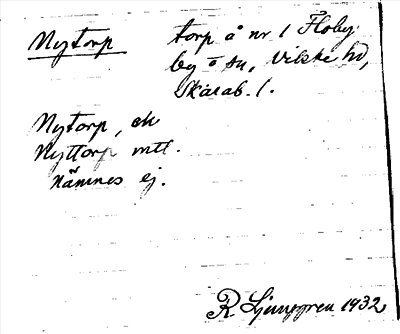 Nytorp torp å nr 1 Floby
by o sn, Vilske hd,
Skarab. l.
Nytorp, ek
Nyttorp mtl.
Nämnes ej.
R Ljunggren 1932